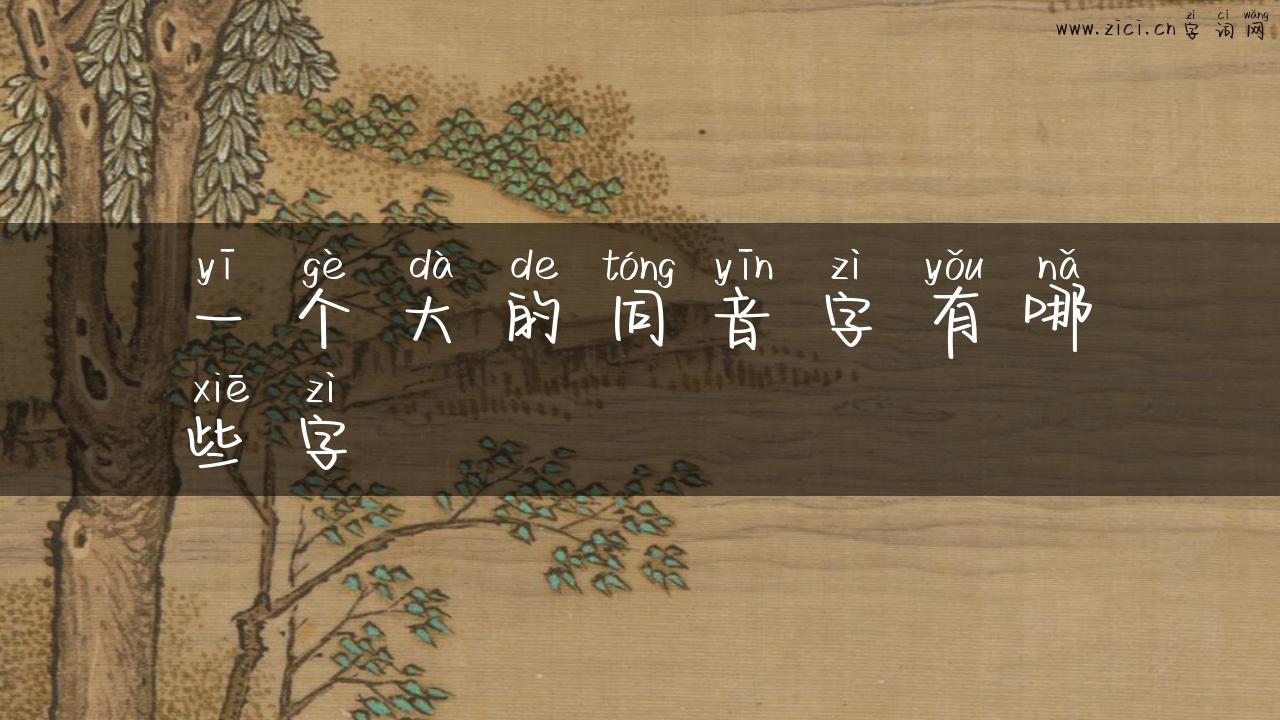 zì cí wǎng
www.zici.cn 字词网
yī gè dà de tóng yīn zì yǒu nǎ
一个大的同音字有哪
xiē zì
些字